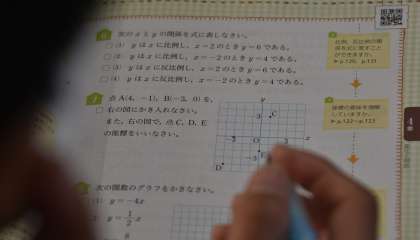 6 次の x と y の関係を式に表しなさい。
(1) y は x に比例し，x＝2のとき y＝6である。
(2) y は x に比例し，x＝－2のとき y＝4である。
(3) y は x に反比例し，x＝2のとき y＝6である。
(4) y は x に反比例し，x＝－2のとき y＝4である。
7 点 A(4，－1)，B(－3，0)を，
右の図にかき入れなさい。
また，右の図で，点 C，D，E
の座標をいいなさい。
y
3
C
O
x
－3
D
次の関数のグラフをかきなさい。
(1) y＝－4x
y＝1/2 x
比例，反比例の関
係を式に表すこと
ができますか。
座標の意味を理解
していますか。
4
章